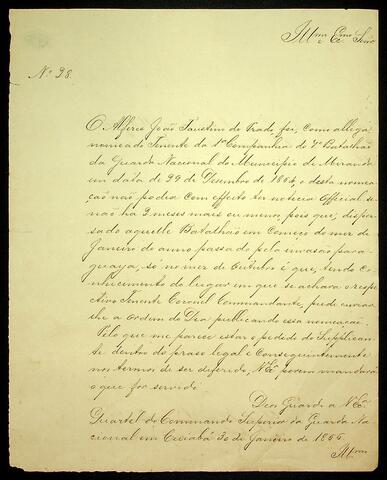 Illmo e Exmo Senr
No 98.
O Alferes João Faustino do Prado foi, como allega,
nomeado Tenente da 1a Companhia do 7o Batalhão
da Guarda Nacional do Municipio de Miranda
em data de 29 de Desembro de 1864, e desta nomea
ção não podia com effeito ter noticia Official se
não ha 3 meses mais ou menos, pois que, disper
sado aquelle Batalhão em começo do mez de
Janeiro do anno passado pela invasão para
guaya, só no mez de Outubro é que, tendo co
nhecimento do lugar em que se achava o respe
ctivo Tenente Coronel Commandante, pude enviar
lhe a ordem do Dia publicando essa nomeação.
Pelo que me parece estar o pedido do Supplican
te dentro do praso legal e conseguintemente
nos termos de ser deferido, V Exa porem mandará
o que for servido
Deos Guarde a V Exa
Quartel do Commando Superior da Guarda Na
cional em Cuiabá 30 de Janeiro de 1866
Illmo